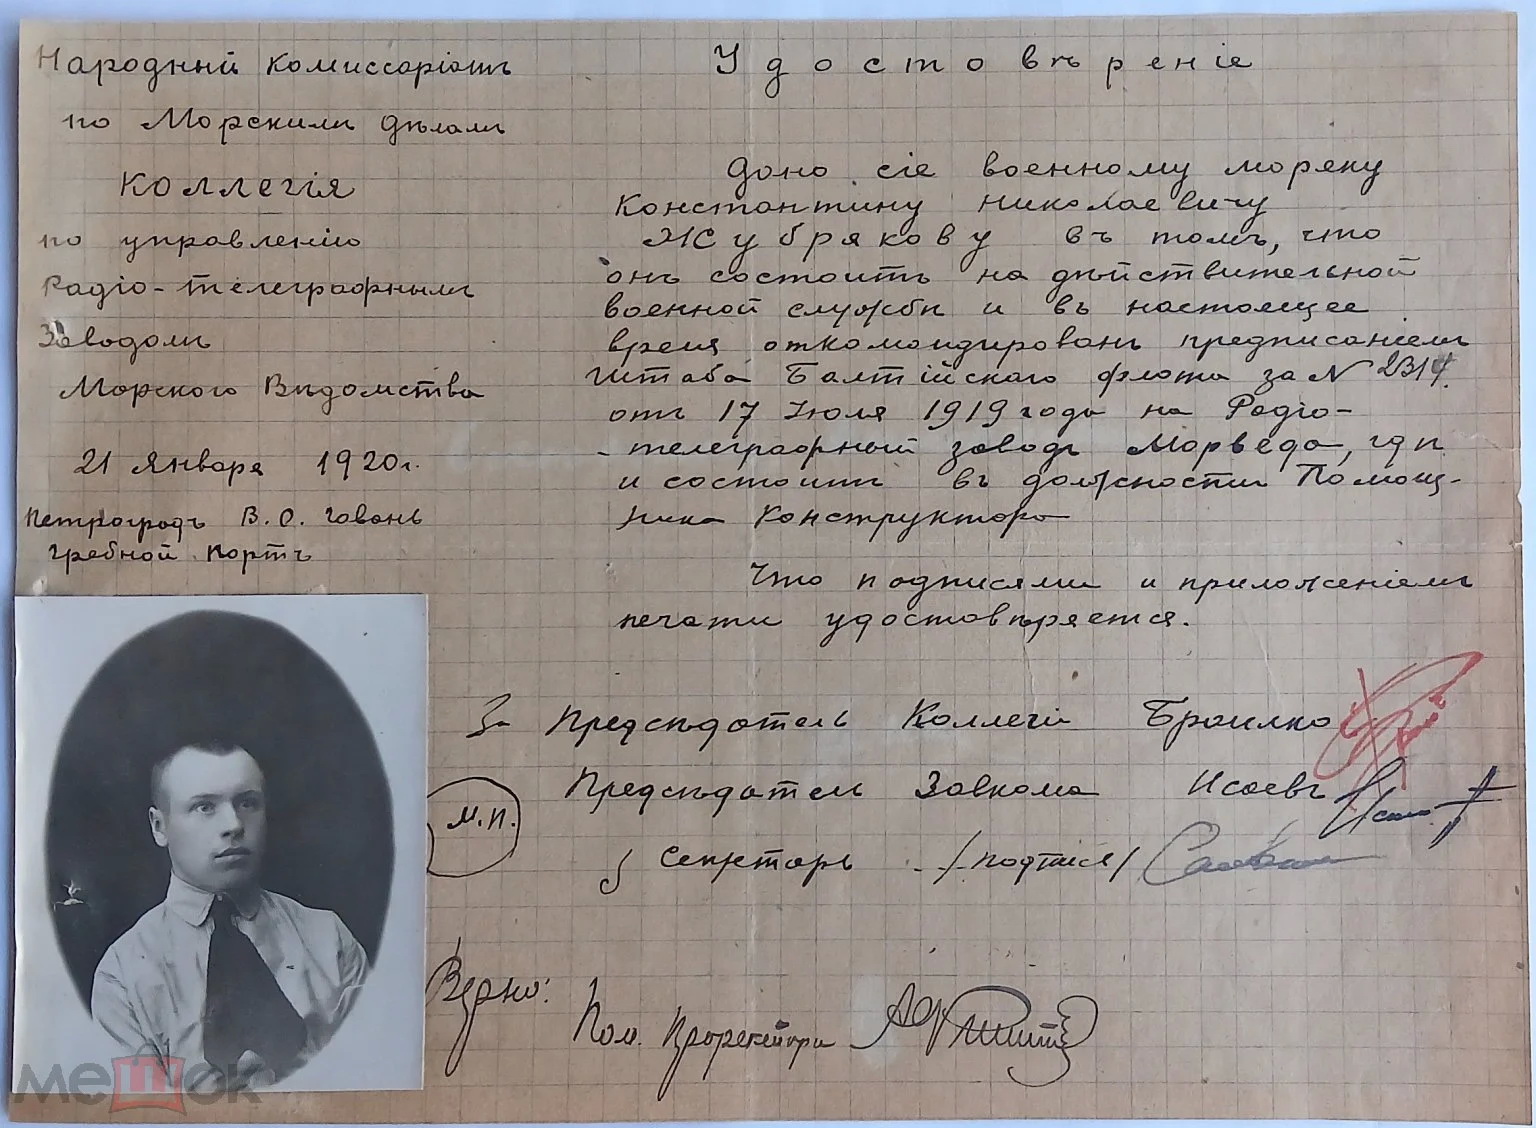 Народный Комиссаріатъ
по Морскимъ дѣламъ
Коллегія
по управленію
Радіо-телеграфнымъ
Заводомъ
Морского Вѣдомства
21 Января 1920 г.
Петроградъ В.О. Гавань
Гребной портъ
Удостовѣреніе
Дано сіе военному моряку
Константину Николаевичу
Жубрякову въ томъ, что
онъ состоитъ на дѣйствительной
военной службѣ и въ настоящее
время откомандированъ предписаніемъ
Штаба Балтійскаго флота за N 2314.
отъ 17 Іюля 1919 года на Радіо-
-телеграфный заводъ Морведа, гдѣ
и состоитъ въ должности Помощ-
ника Конструктора
Что подписями и приложеніемъ
печати удостовѣряется.
За Предсѣдатель Коллегіи Браилко
Предсѣдатель Завкома Исаевъ
М.П.
Секретарь /подпись/
Верно:
Пом.
мешок